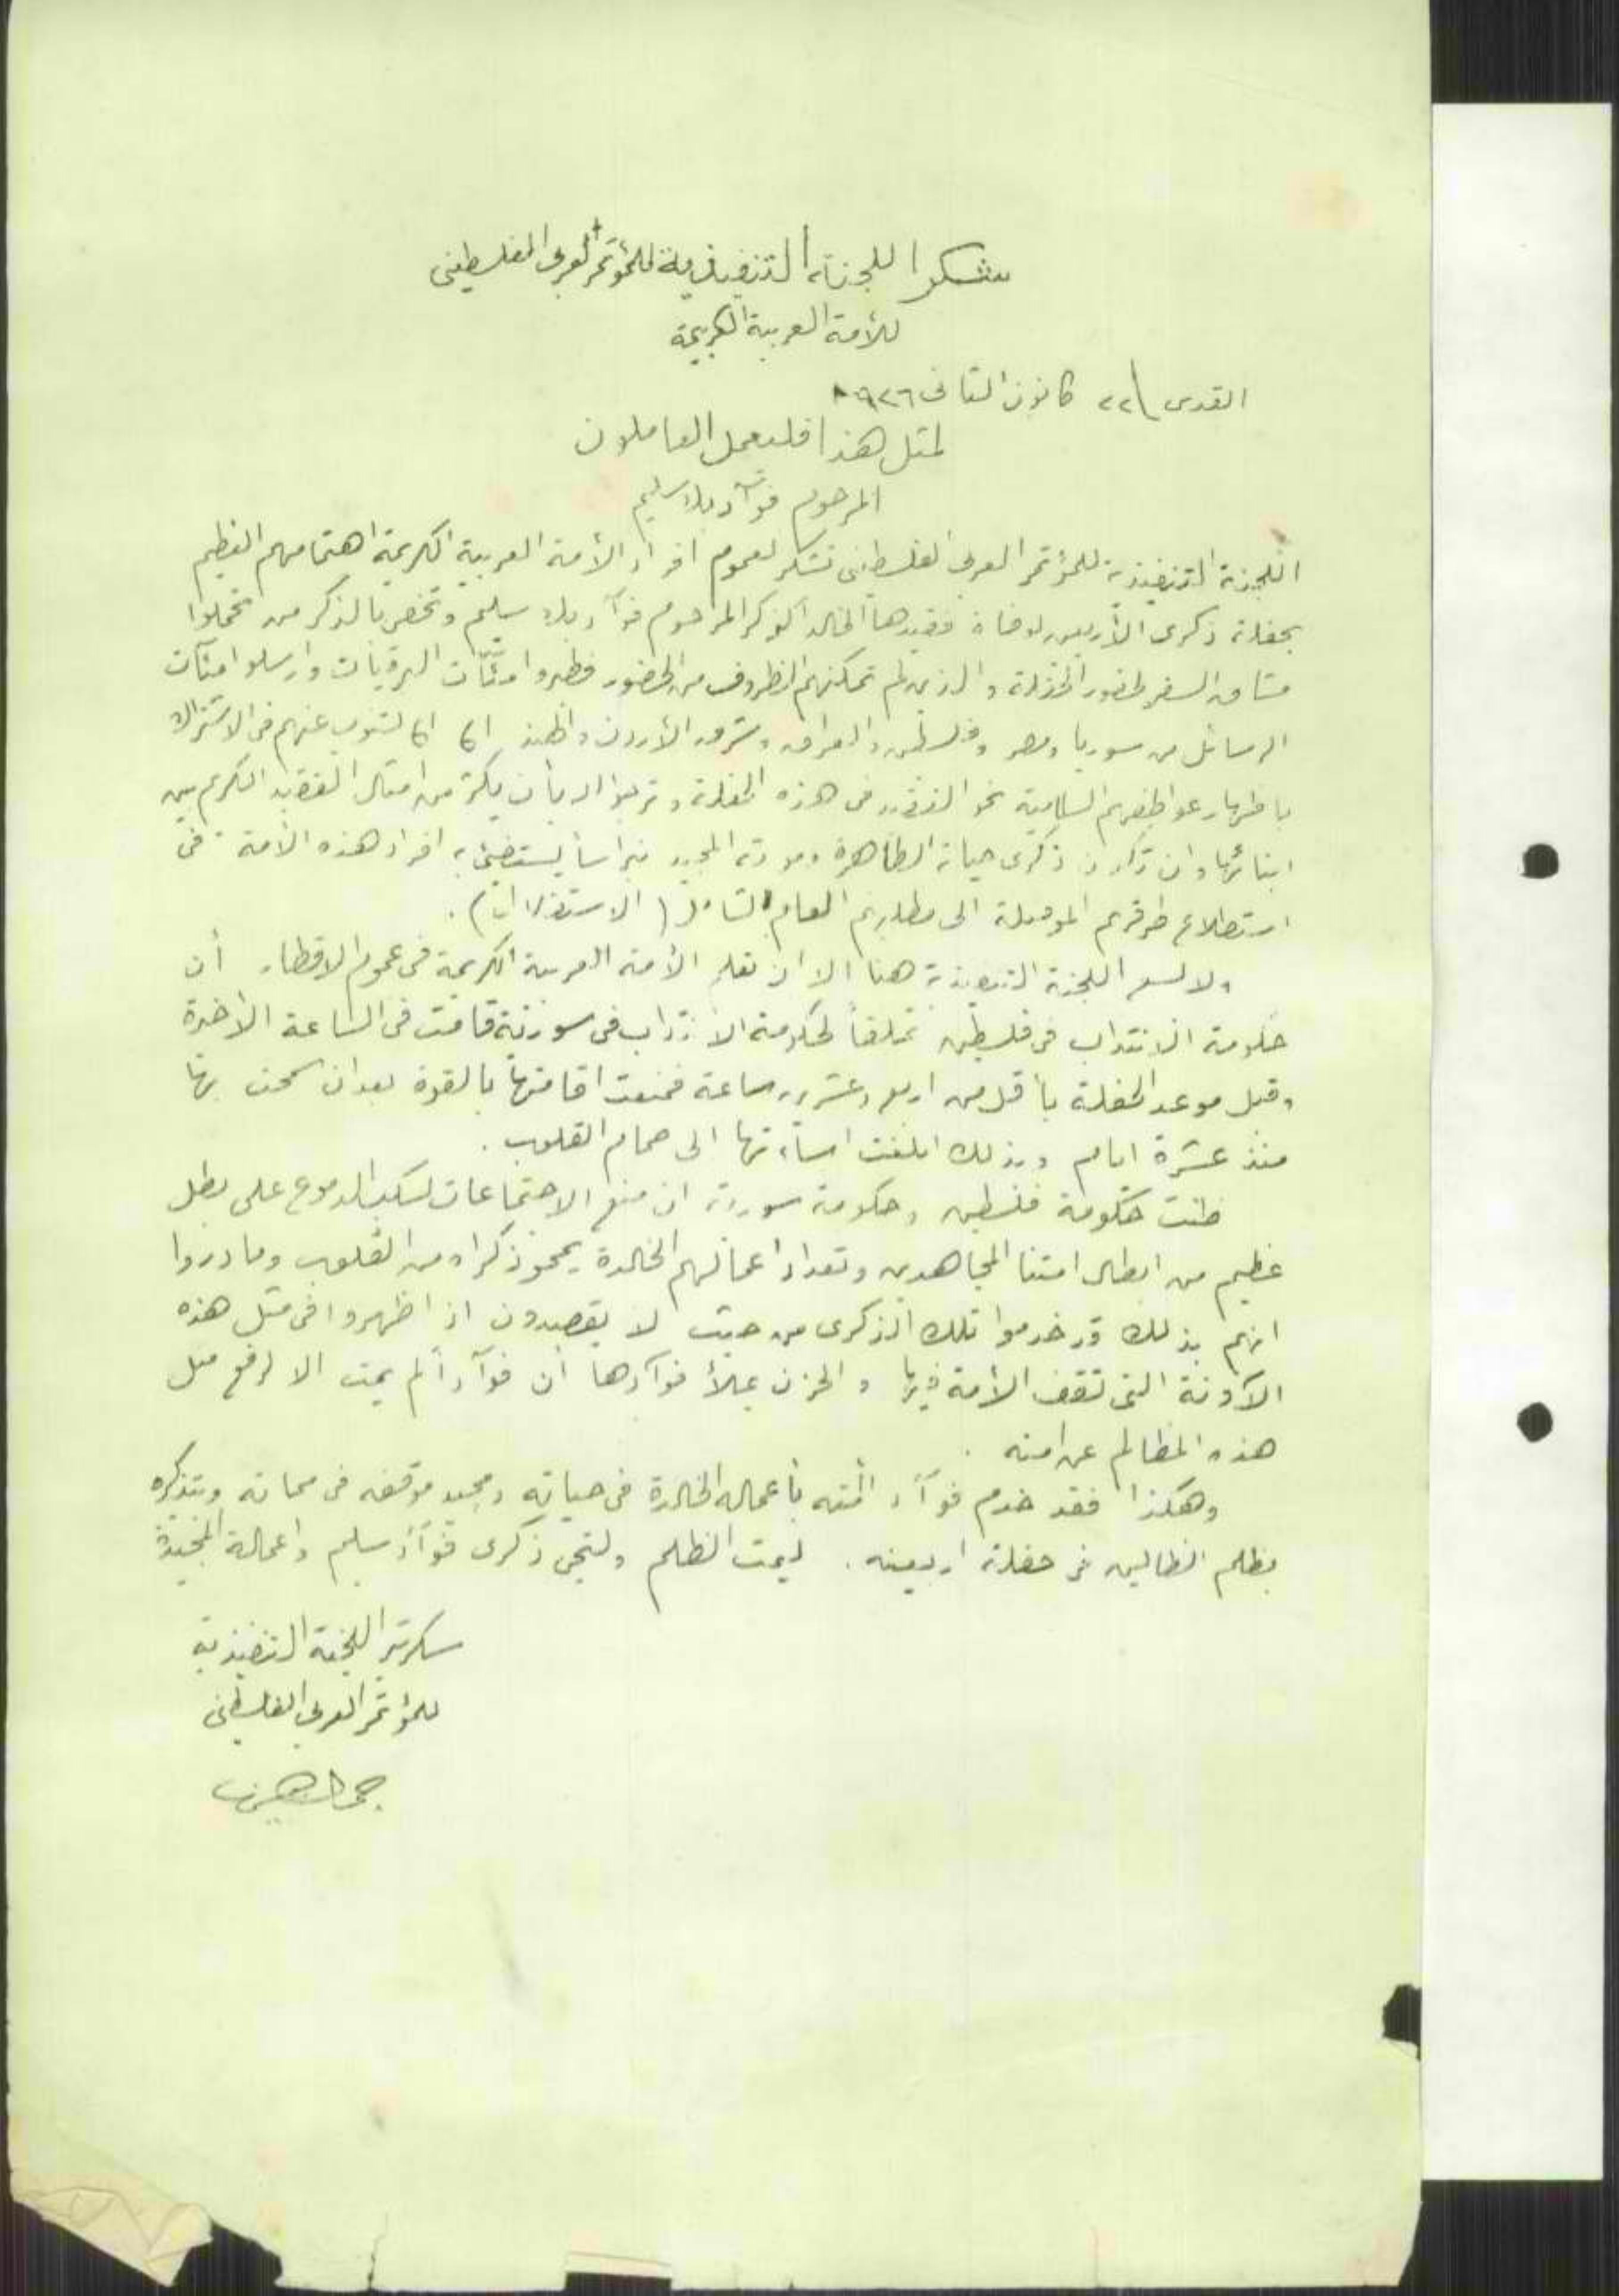 شكر اللجنة التنفيذية للمؤتمر العربي الفلسطيني
للأمة العربية الكريمة
القدس ٢٢ كانون الثاني ٩٢٦
لمثل هذا فليعمل العاملون
المرحوم فوآد بك سليم
اللجنة التنفيذية للمؤتمر العربي الفلسطيني تشكر لعموم افراد الأمة العربية الكريمة اهتمامهم العظيم
بحفلة ذكرى الأربعين لوفاة فقيدها الخالد الذكر المرحوم فوآد بك سليم وتخص بالذكر من تحملوا
مشاق السفر لحضور الحفلة والذين لم تمكنهم الظروف من الحضور فطيروا مئآت البرقيات وارسلوا مئآت
الرسائل من سوريا ومصر وفلسطين والعراق وشرق الأردن والهند لتنوب عنهم في الاشتراك
باظهار عواطفهم السامية نحو الفقيد في هذه الحفلة وترجو الله بأن يكثر من امثال الفقيد الكريم بين
ابنائها وان تكون ذكرى حياته الطاهرة وموته المجيد نبراساً يستضيء به افراد هذه الأمة في
استطلاع طرقهم الموصلة الى مطلبهم العام الشامل (الاستقلال).
ولا يسع اللجنة التنفيذية هنا الا ان تعلم الأمة العربية الكريمة في عموم الاقطار أن
حكومة الانتداب في فلسطين تملقاً لحكومة الانتداب في سورية قامت في الساعة الأخيرة
وقبل موعد الحفلة بأقل من اربع وعشرين ساعة فمنعت اقامتها بالقوة بعد ان سمحت بها
منذ عشرة ايام وبذلك ابلغت اساءتها الى صمام القلوب.
ظنت حكومة فلسطين وحكومة سورية ان منع الاجتماعات لسكب الدموع على بطل
عظيم من ابطال امتنا المجاهدين وتعداد اعمالهم الخالدة يمحو ذكراه من القلوب وما دروا
انهم بذلك قد خدموا تلك الذكرى من حيث لا يقصدون اذ اظهروا في مثل هذه
الآونة التي تقف الأمة فيها والحزن يملأ فوآدها أن فوآداً لم يمت الا لرفع مثل
هذه المظالم عن امته.
وهكذا فقد خدم فوآد امته بأعماله الخالدة في حياته ومجيد موقفه في مماته وبتذكره
بظلم الظالمين في حفلة اربعينه. ليمت الظلم ولتحي ذكرى فوآد سليم واعماله المجيدة
سكرتير اللجنة التنفيذية
للمؤتمر العربي الفلسطيني
جمال الحسيني